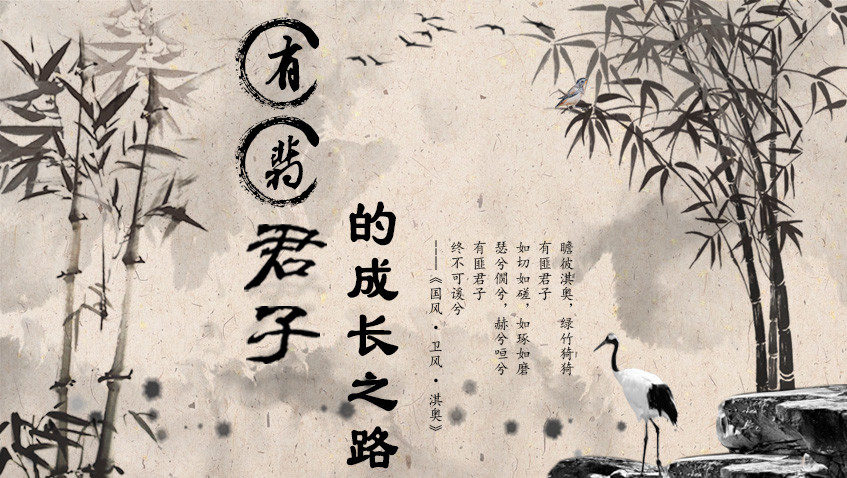 有翡君子
的成长之路
瞻彼淇奥，绿竹猗猗
有匪君子
如切如磋，如琢如磨
瑟兮僩兮，赫兮咺兮
有匪君子
终不可谖兮
——《国风·卫风·淇奥》